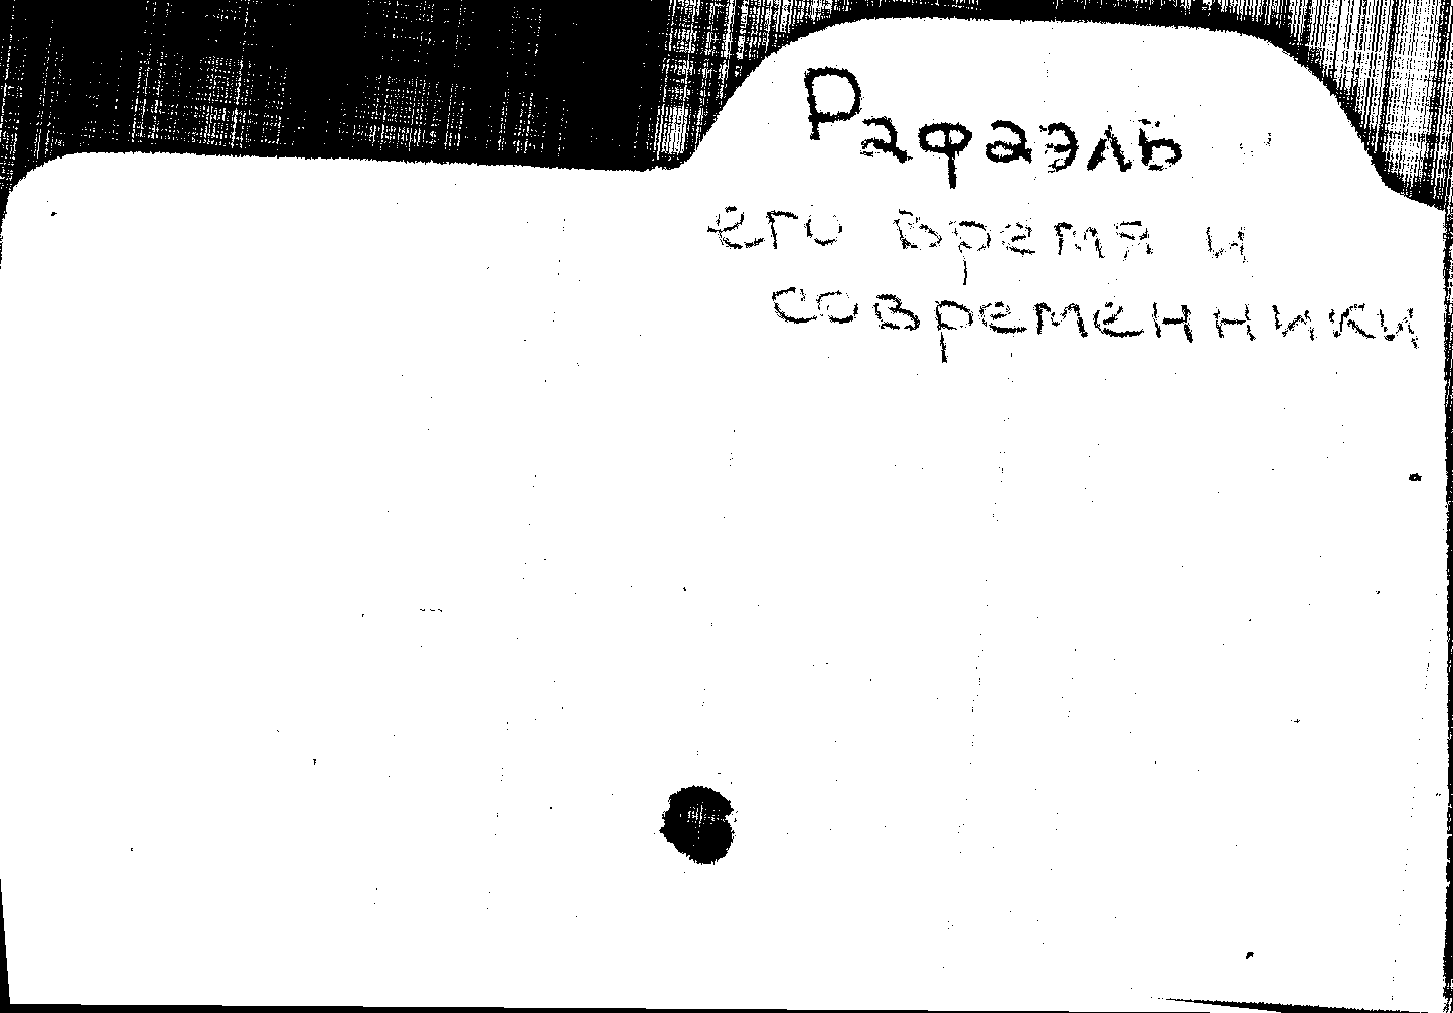 Рафаэль
его время и
современники